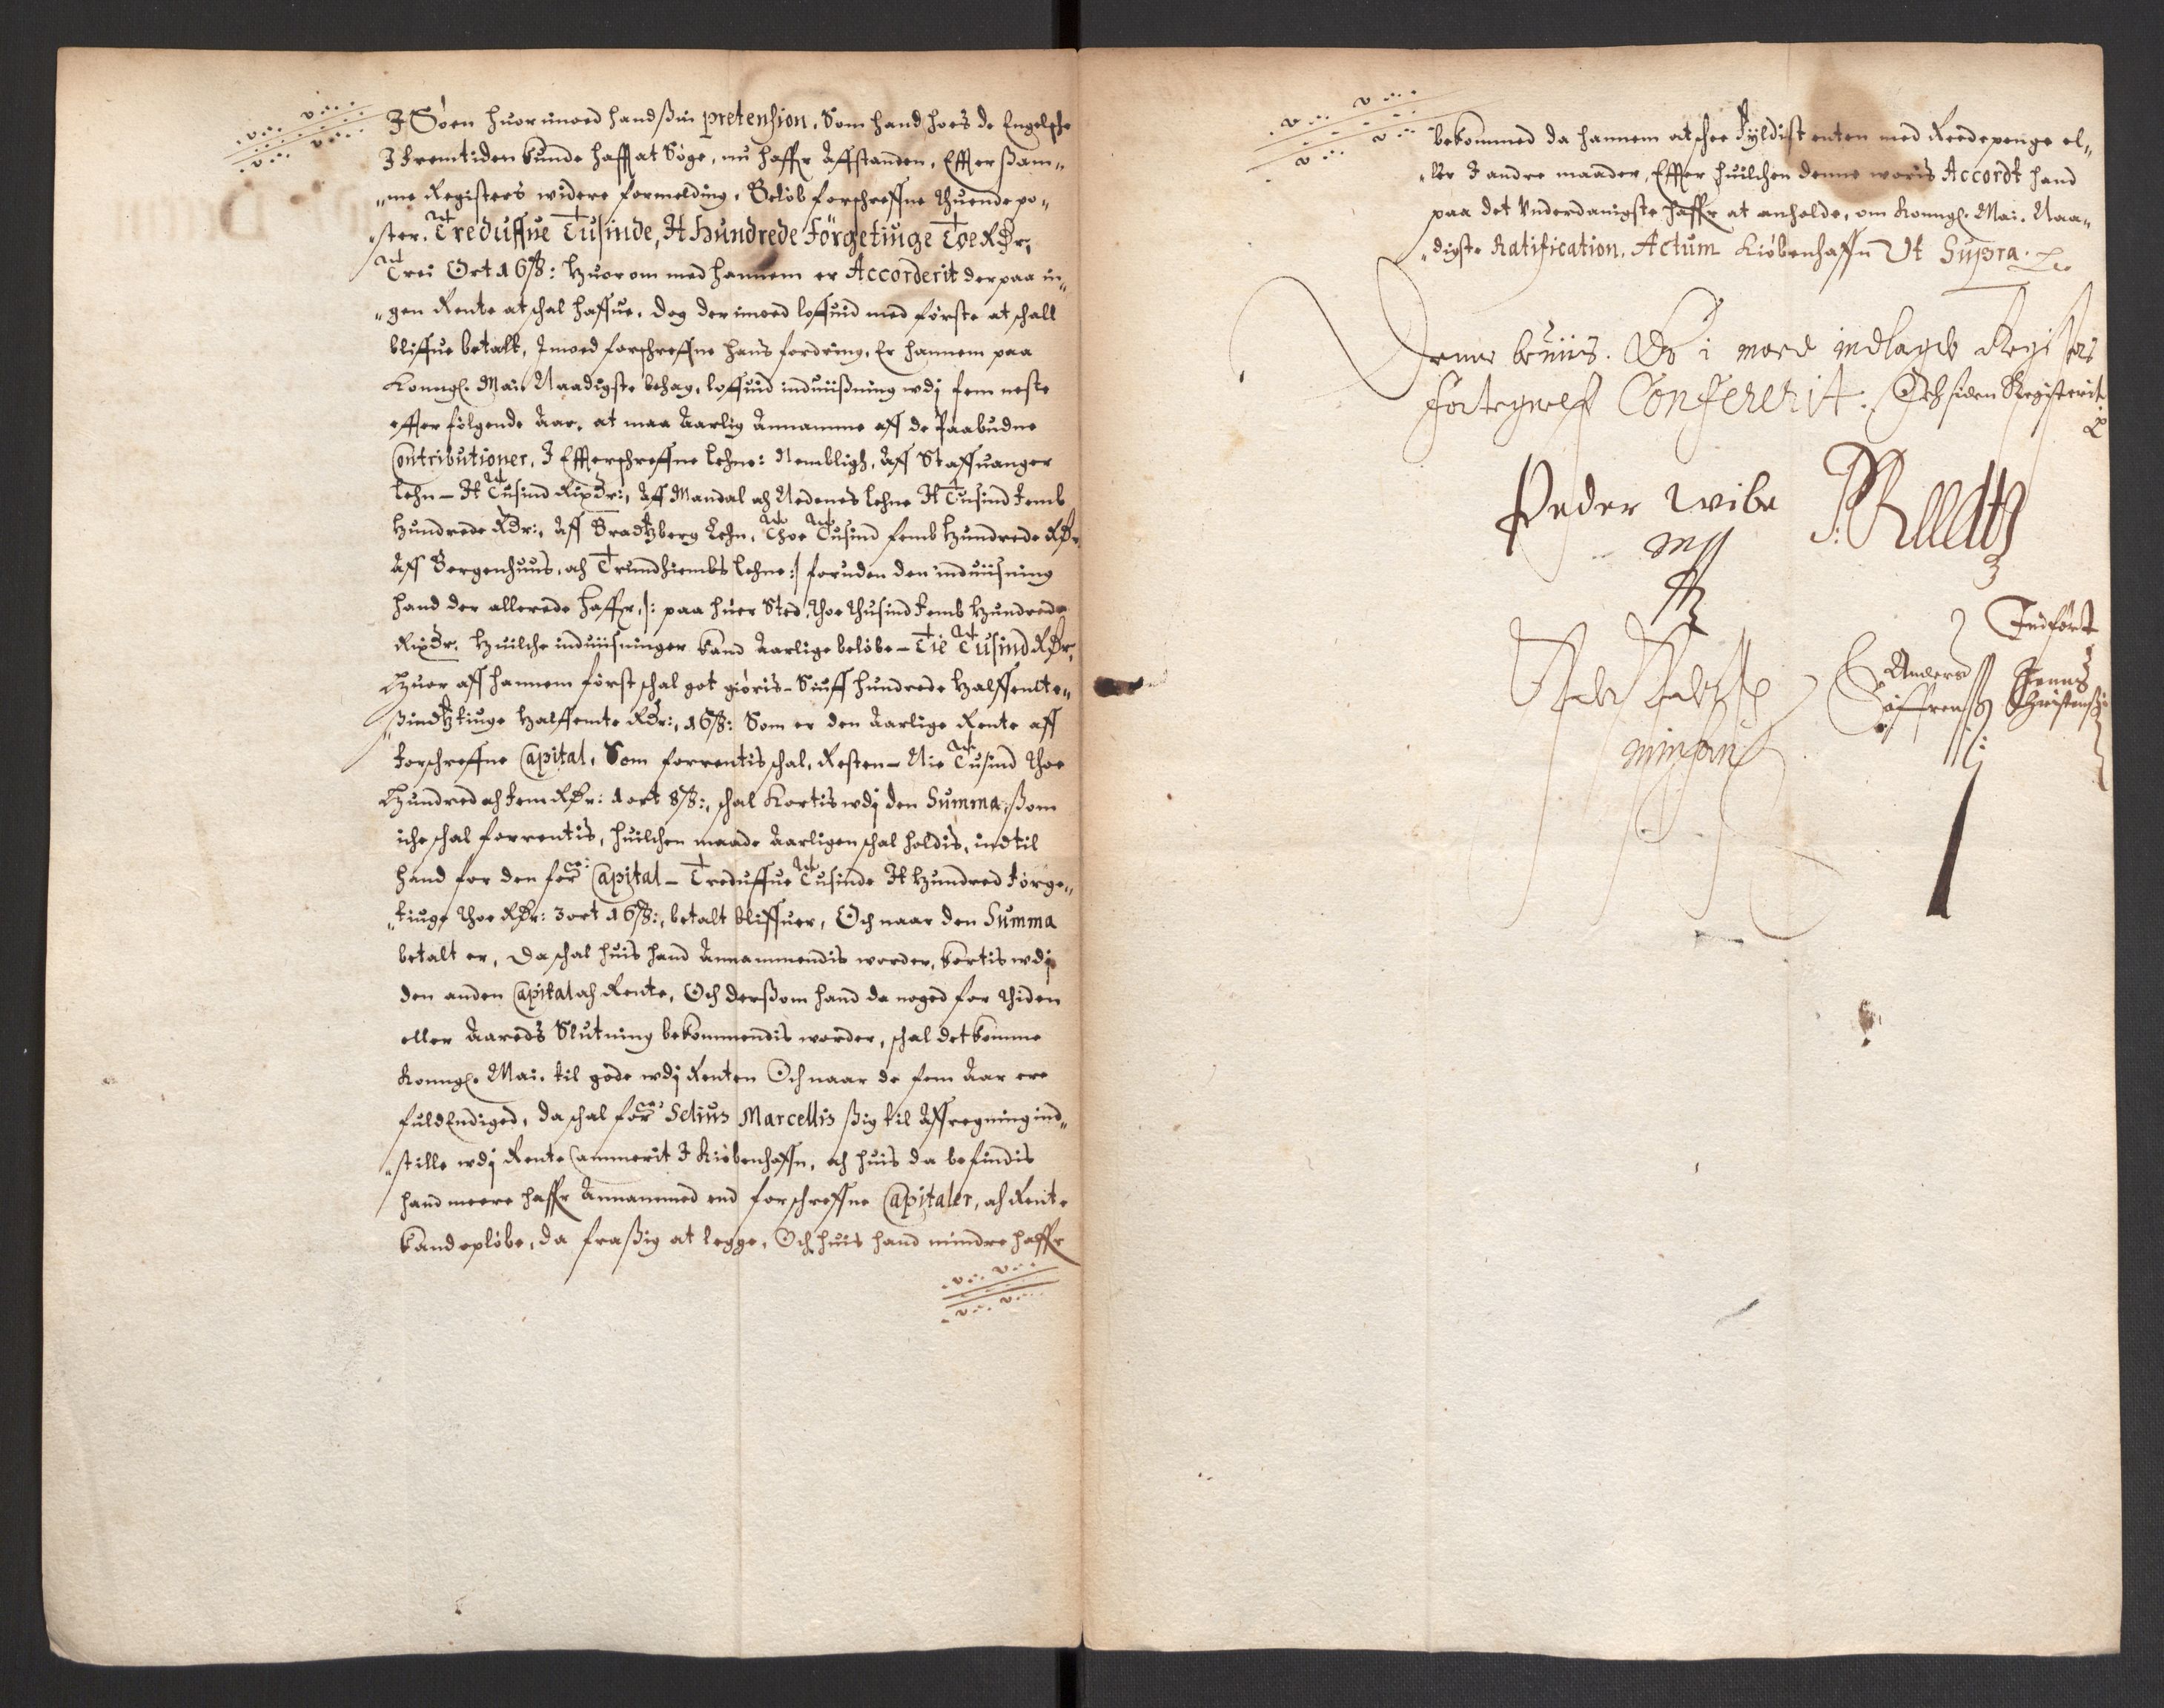 I Søen huor imoed hand ßin pretension, Som hand hoes de Engelsche
I fremtiden kunde haff at Søge, nu haffr Affstanden, Effter ßam„
„me Registers widere formelding, Beløb forschreffne thuende po„
„ster. Treduffue Tusinde, It Hundrede Förgetiuge Toe RDr,
Trei Ort 16 ß: Huorom med hannem er Accorderit der paa in„
„gen Rente at schal haffue, dog der imoed loffuid med første at schall
bliffue betalt, Imoed forschreffne hans fordring, Er hannem paa
Konngl. Mai. Naadigste behag, loffuid induiißning wdj fem neste
effter følgende Aar, at maa Aarlig Annamme aff de Paabudne
Contributioner, I Effterschreffne lehne: Nembligh, Aff Staffuanger
lehn – It Tusind Rixdr:, Aff Mandal och Nedenes lehne It Tusind femb
Hundrede Rdr:, Aff Bradtzberg Lehn, Thoe Tusind femb Hundrede RDr
Aff Bergenhuus, och Trundhiembs lehne :/ foruden den induiisning
hand der allerede haffr, /: paa huer Sted, thoe thusind femb Hundrede
Rixdr. Huilche induiisninger kand Aarlige beløbe – Tie Tusind RDr,
Huor aff hannem først schal got giøris – Siuff hundrede Halffemte„
„ßindtztiuge Halffemte Rdr:, 16 ß: Som er den Aarlige Rente aff
forschreffne Capital, Som forrentis schal, Resten – Nie Tusind thoe
Hundred och fem RDr: 1 ort 8 ß:, schal kortis wdj den Summa, ßom
iche schal forrentis, huilchen maade Aarligen schal holdis, indtil
hand for den for: Capital – Treduffue Tusinde It Hundred førge„
„tiuge thoe RDr: 3 ort 16 ß:, betalt bliffuer, Och naar den Summa
betalt er, Da schal huis hand Annammendis worder, kortis wdj
den anden Capital och Rente, Och derßom hand da noged for thiden
eller Aareds Slutning bekommendis worder, schal det komme
Konngl. Mai. til gode wdj Renten Och naar de fem Aar ere
fuldEndiged, da schal for: Selius Marcellis ßig til Affregning ind„
„stille wdj Rente Cammerit I Kiøbenhaffn, och huis da befindis
hand meere haffr Annammed end forschreffne Capitaler, och Rente
kand opløbe, da fra ßig at legge, Och huis hand mindre haffr
bekommed da hannem at schee fyldist enten med Reedepenge el„
„ler I andre maader, Effter huilchen denne woris Accordt hand
paa det Vnderdanigste haffr at anholde, om Konngl. Mai. Naa„
„digste Ratification. Actum Kiøbenhaffn Ut Supra.
Denne beuiis. Er i moed indlagde Registers
Confererit. Och siden Registerit
Peder Wibe
mpp
P. Reedtz
Indført
Anders
Jenns
Christensen